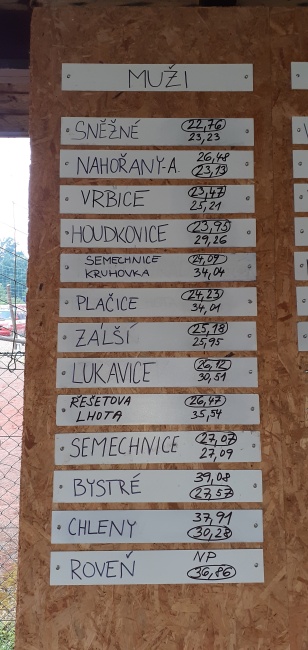 MUŽI
SNĚŽNÉ 22,76
23,23
NAHOŘANY-A 26,48
23,13
VRBICE 23,47
25,21
HOUDKOVICE 23,95
29,26
SEMECHNICE 24,09
KRUHOVKA 34,04
PLAČICE 24,23
34,01
ZÁLŠÍ 25,18
25,95
LUKAVICE 26,12
30,51
ŘEŠETOVA 26,47
LHOTA 35,54
SEMECHNICE 27,07
27,09
BYSTRÉ 39,08
27,57
CHLENY 37,91
30,28
ROVEŇ NP
36,86